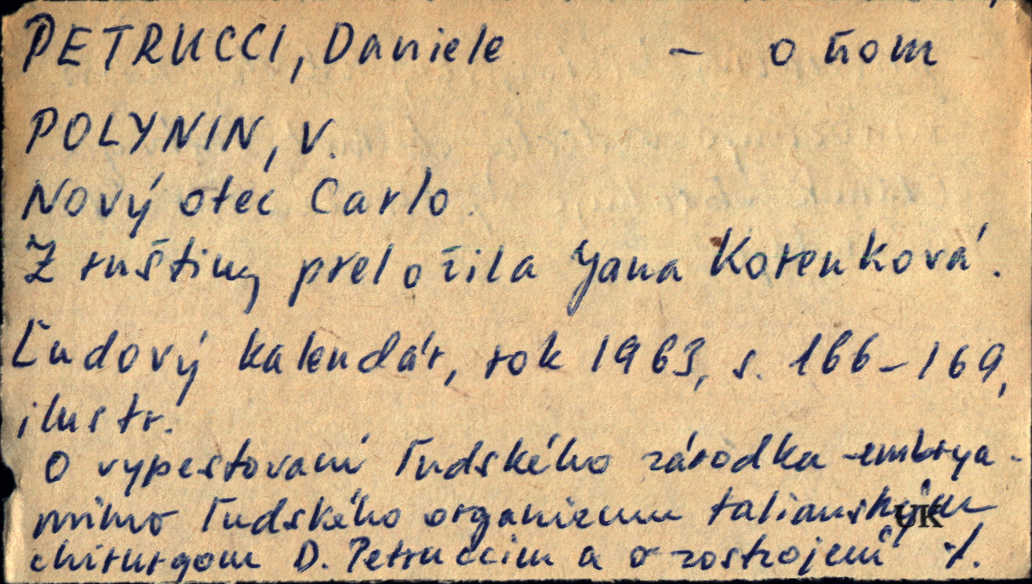 PETRUCCI, Daniele - o ňom
POLYNIN, V.
Nový otec Carlo.
Z ruštiny preložila Jana Korenková.
Ľudový kalendár, rok 1963, s. 166-169,
ilustr.
O vypestovaní ľudského zárodka -embrya-
mimo ľudského organizmu talianskym
chirurgom D. Petruccim a o zostrojení ./.
UK